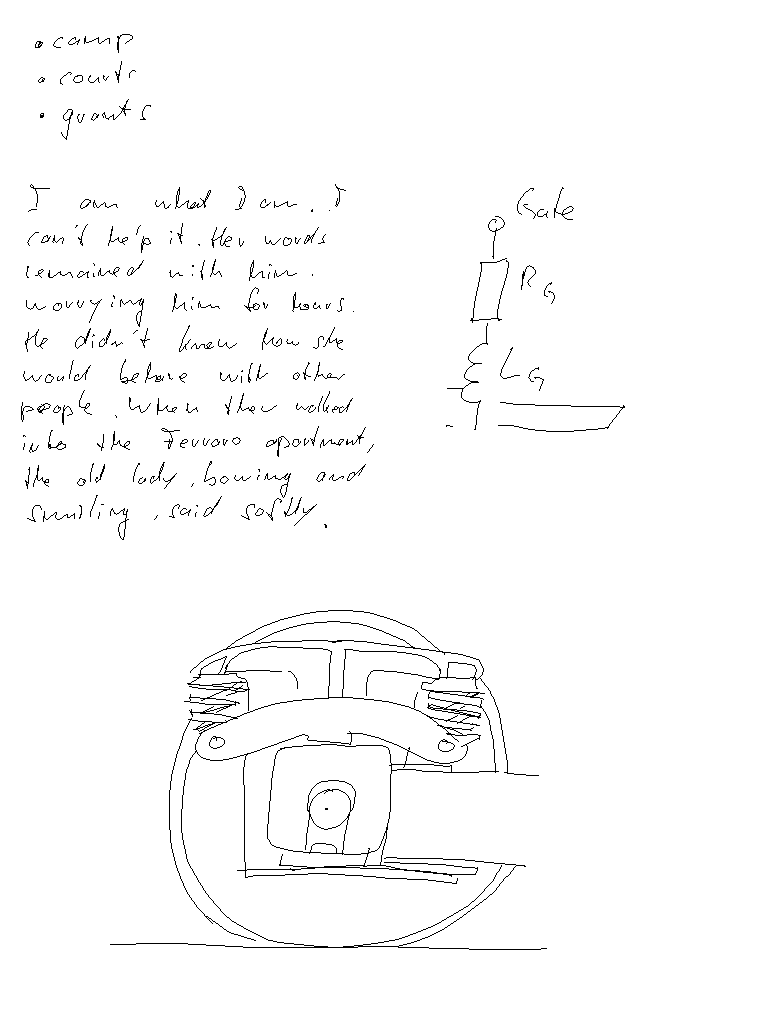 • camp
• courts
• grants
I am what I am. I
can't help it. Her words
remained with him.
worrying him for hours.
He didn't know how she
would behave with other
people. When they walked
into the Ferraro apartment,
the old lady, bowing and
smiling, said softly.
Gate
RG
LG